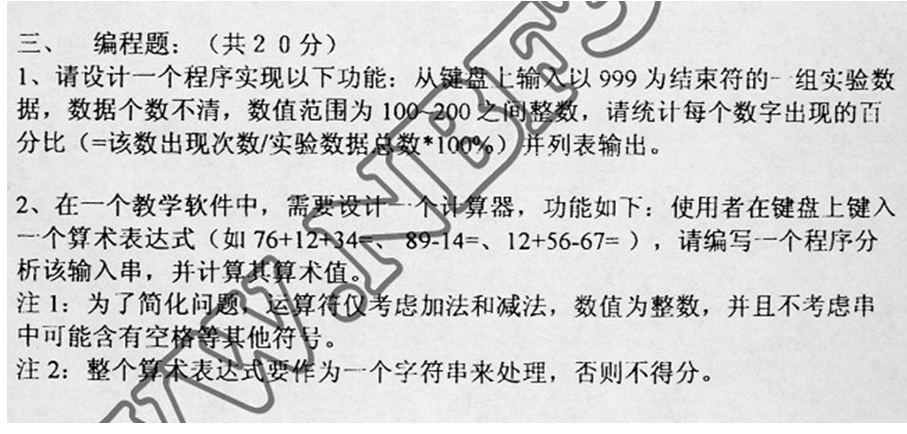 三、 编程题：（共20分）
1、请设计一个程序实现以下功能：从键盘上输入以 999 为结束符的一组实验数
据，数据个数不清，数值范围为 100~200 之间整数，请统计每个数字出现的百
分比（=该数出现次数/实验数据总数*100%）并列表输出。
2、在一个教学软件中，需要设计一个计算器，功能如下：使用者在键盘上键入
一个算术表达式（如 76+12+34=、 89-14=、12+56-67= ），请编写一个程序分
析该输入串，并计算其算术值。
注 1：为了简化问题，运算符仅考虑加法和减法，数值为整数，并且不考虑串
中可能含有空格等其他符号。
注 2：整个算术表达式要作为一个字符串来处理，否则不得分。